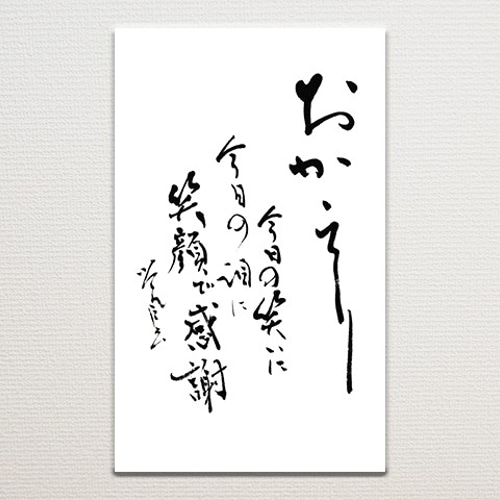 おかえり
今日の笑いに
今日の涙に
笑顔で感謝